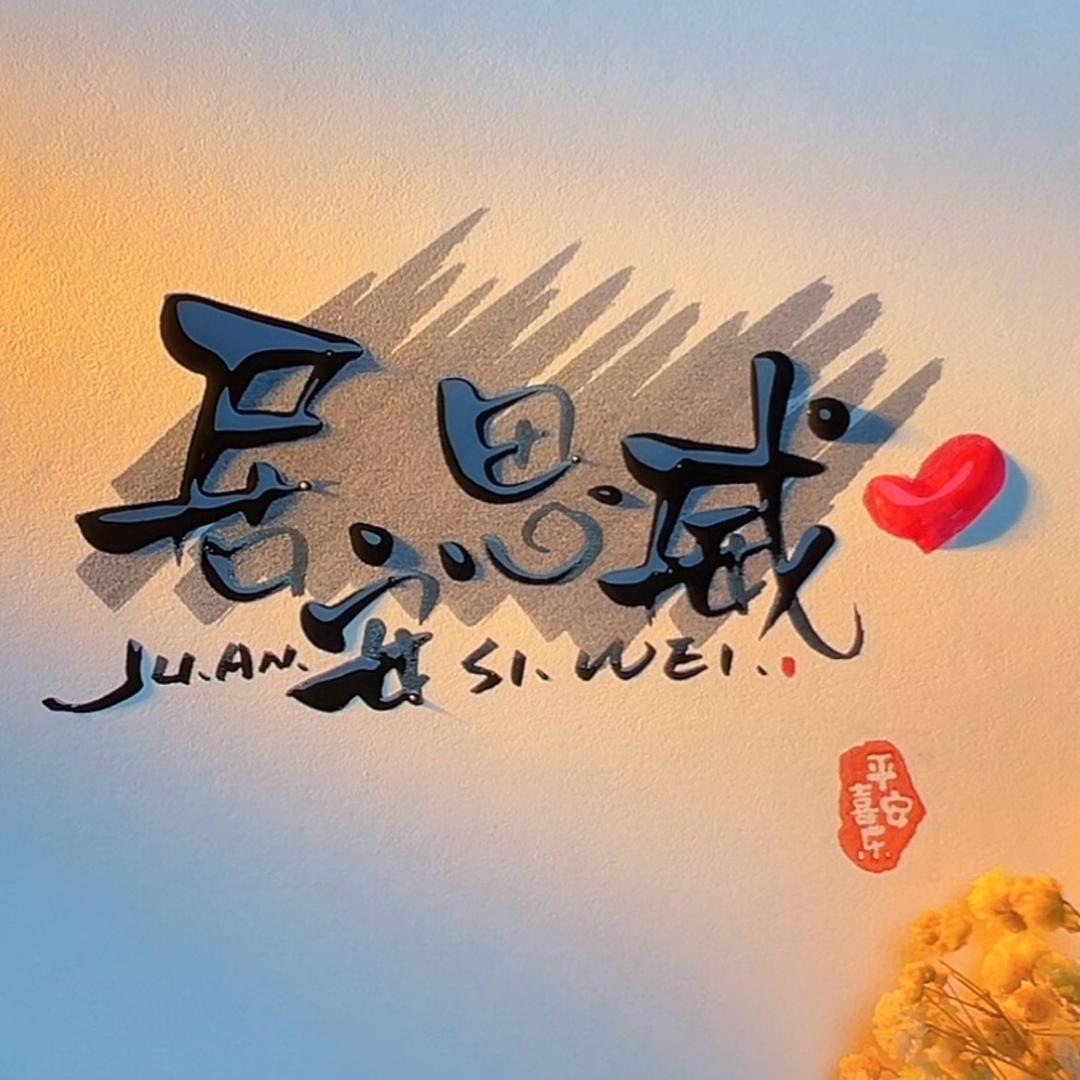 居安思威
JU.AN. SI.WEI.
平安
喜乐